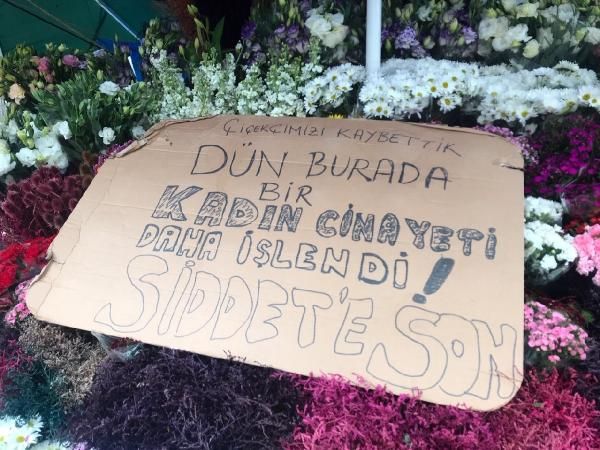 ÇİÇEKÇİMİZİ KAYBETTİK
DÜN BURADA
BİR
KADIN CİNAYETİ
DAHA İŞLENDİ!
ŞİDDET'E SON